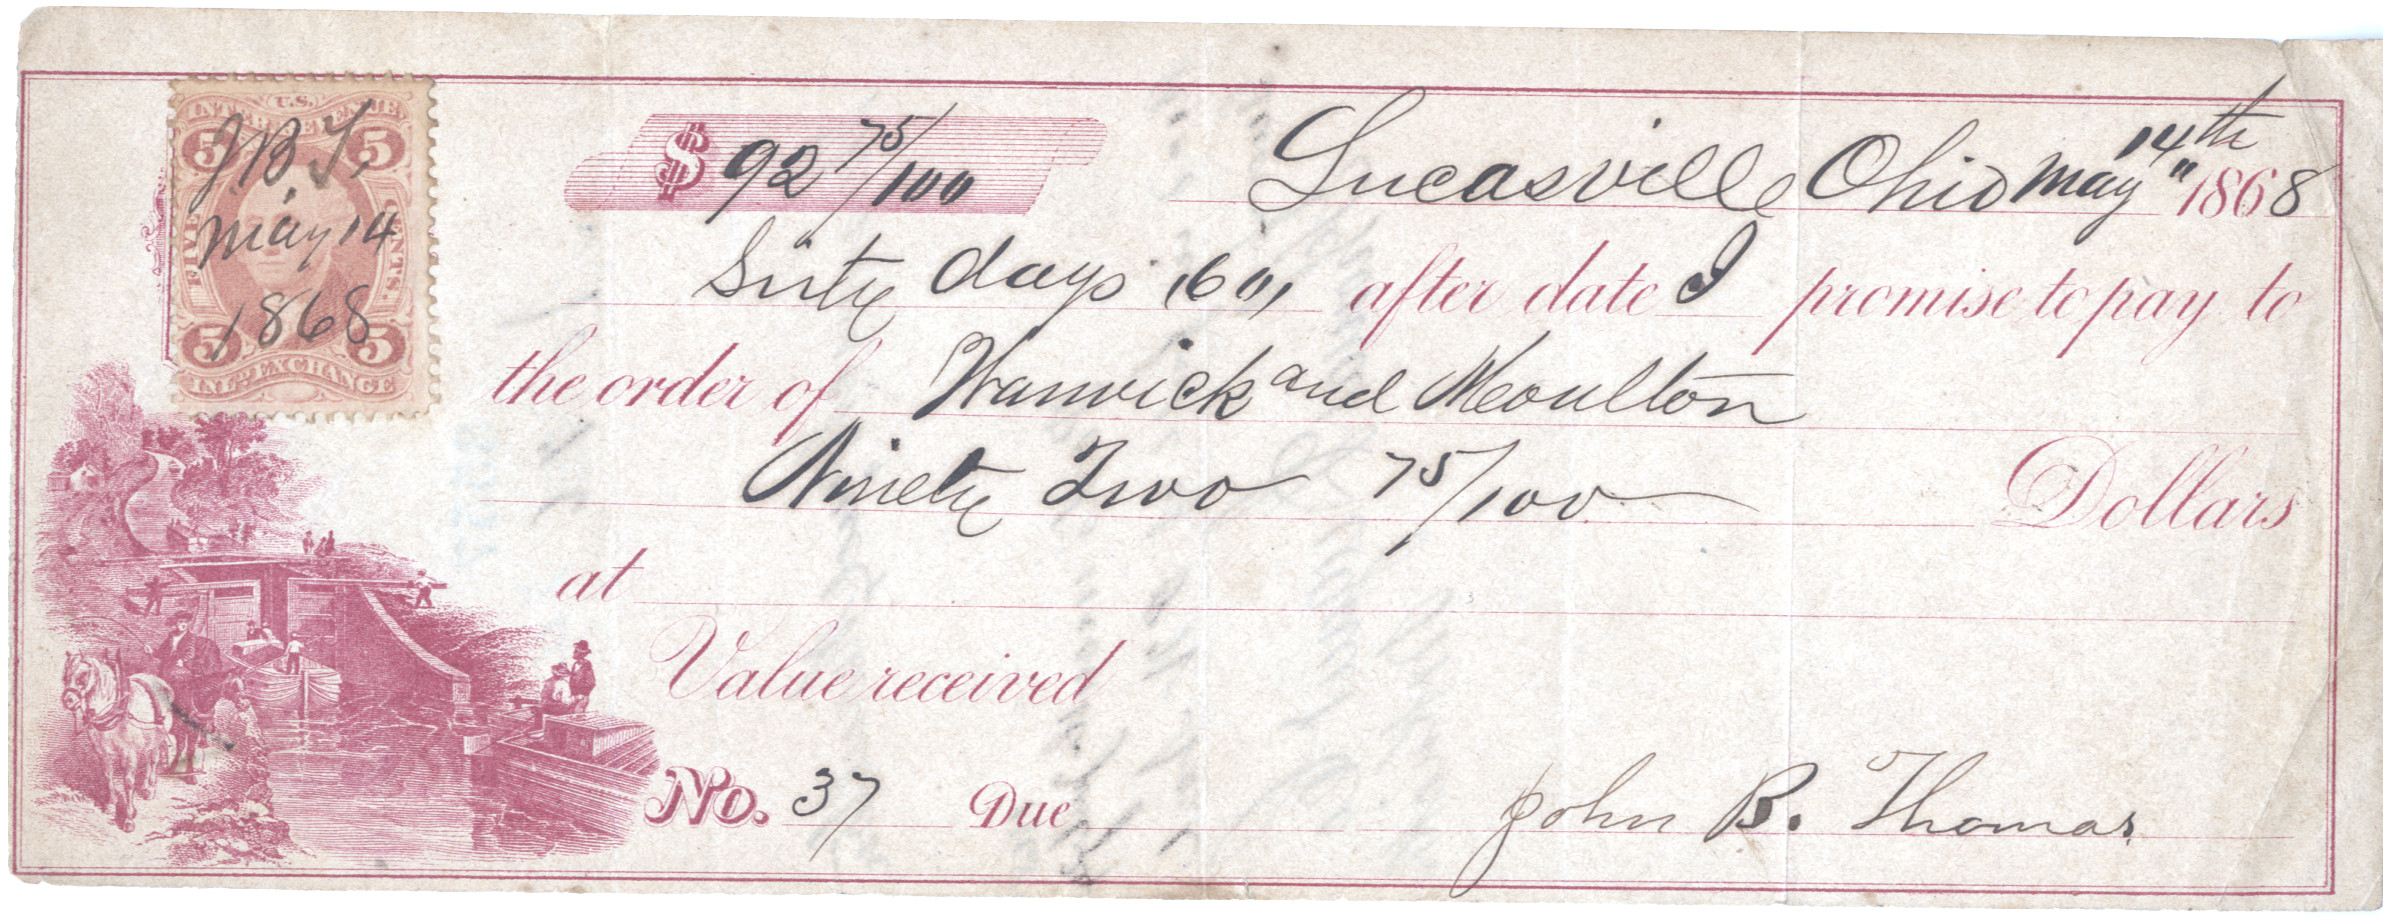 U.S.
INTER. REVENUE
5 5
J.B.T.
FIVE CENTS.
May 14
1868
5 5
INLAND EXCHANGE
$ 92 75/100
Lucasville Ohio May 14th 1868
Sixty days (60) after date I promise to pay to
the order of Warwick and Moulton
Ninety Two 75/100 Dollars
at
Value received
No. 37 Due
John B. Thomas